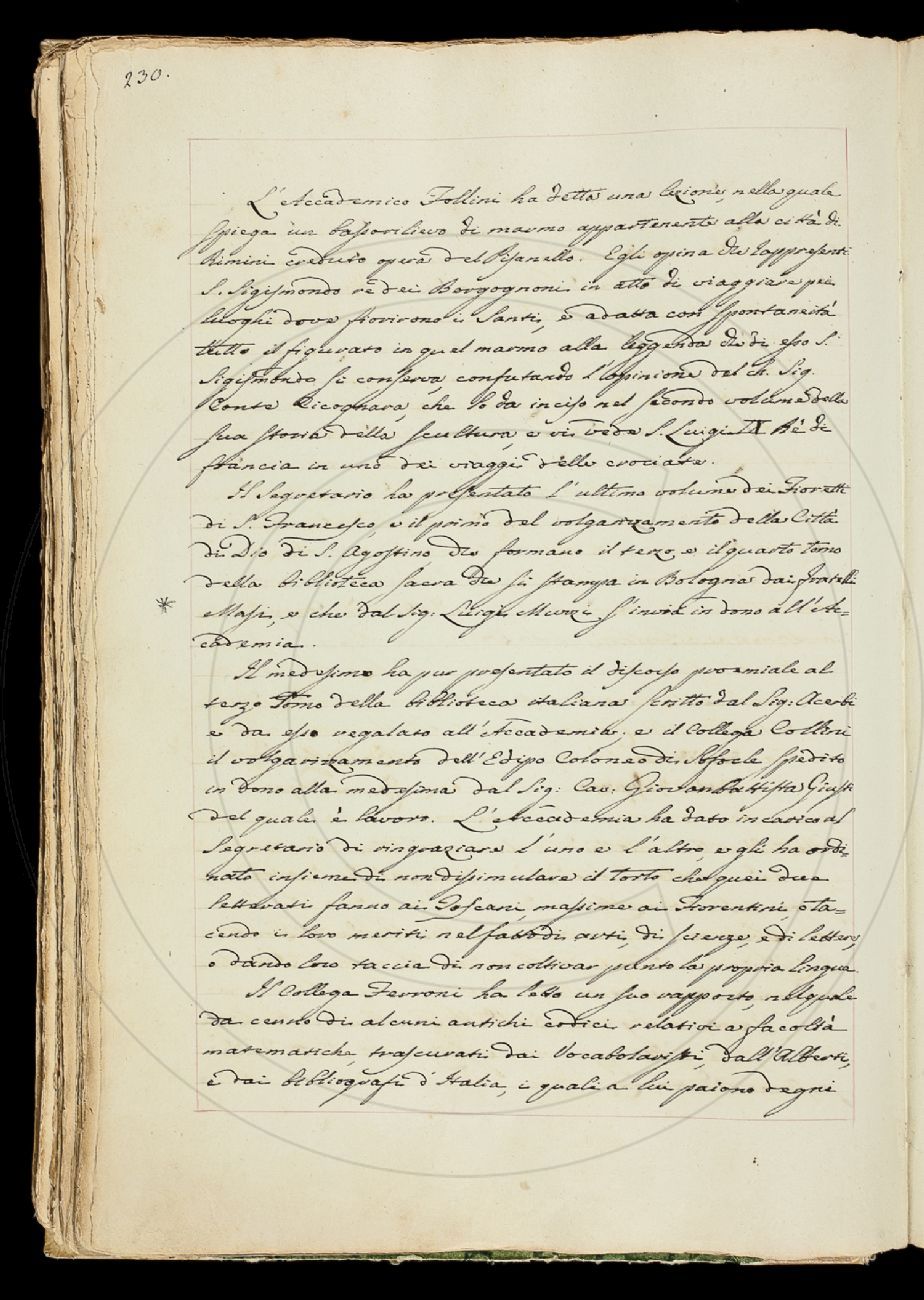 230.
L'Accademico Follini ha detta una lezione, nella quale
spiega un bassorilievo di marmo appartenente alla città di
Rimini creduto opera del Pisanello. Egli opina che rappresenti
S. Sigismondo rè dei Borgognoni in atto di viaggiare pei
luoghi dove fiorirono i Santi, e adatta con spontaneità
tutto il figurato in quel marmo alla leggenda che di esso S.
Sigismondo si conserva, confutando l'opinione del ch. Sig.
Conte Cicognara, che lo dà inciso nel secondo volume della
sua storia della scultura, e vi vede S. Luigi IX Rè di
francia in uno dei viaggi delle crociate.
Il Segretario ha presentato l'ultimo volume dei Fioretti
di S. Francesco, e il primo del volgarizzamento della Città
di Dio di S. Agostino che formano il terzo, e il quarto tomo
della biblioteca sacra che si stampa in Bologna dai fratelli
Masi, e che dal Sig: Luigi Muzzi s'invia in dono all'Ac=
cademia.
Il medesimo ha pur presentato il discorso proemiale al
terzo Tomo della biblioteca italiana scritto dal Sig: Acerbi
e da esso regalato all'Accademia; e il Collega Collini
il volgarizzamento dell'Edipo Coloneo di Sofocle spedito
in dono alla medesima dal Sig: Cav: Giovanbattista Giusti
del quale è lavoro. L'Accademia ha dato incarico al
Segretario di ringraziare l'uno e l'altro, e gli ha ordi=
nato insieme di non dissimulare il torto che quei due
letterati fanno ai Toscani, massime ai Fiorentini, o ta=
cendo i loro meriti nel fatto di arti, di scienze, e di lettere,
o dando loro taccia di non coltivar punto la propria lingua.
Il Collega Ferroni ha letto un suo rapporto, nel quale
dà cenno di alcuni antichi codici relativi a facoltà
matematiche, trascurati dai Vocabolaristi, dall'Alberti,
e dai bibliografi d'Italia, i quali a lui paiono degni